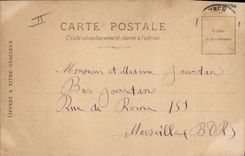 CARTE POSTALE
Ce côté est exclusivement réservé à l'adresse
OFFERT A TITRE GRACIEUX
II
Monsieur et Madame Jourdan
Bar Jourdan
Rue de Rome 155
Marseille BDR